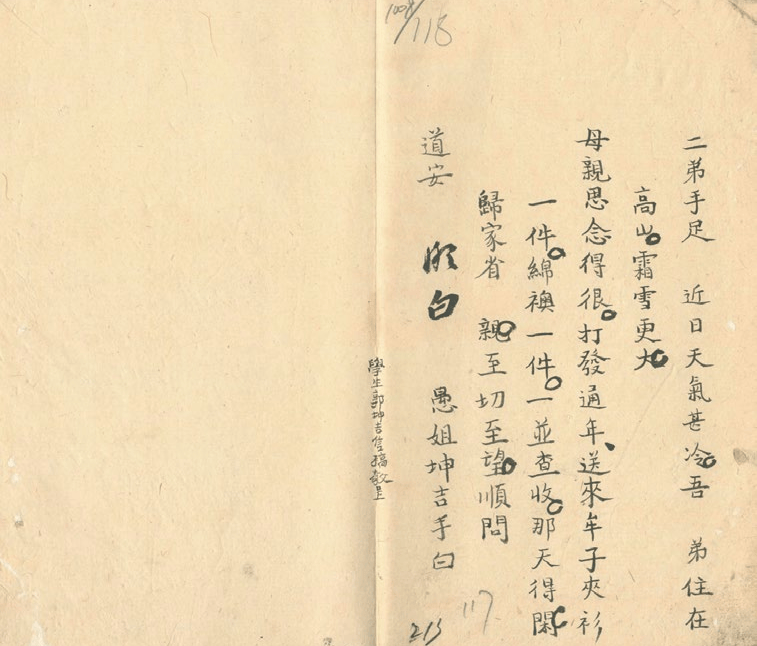 二弟手足　近日天氣甚冷。吾　弟住在
高山。霜雪更大。
母親思念得很。打發通年、送來牟子夾衫
一件。綿襖一件。一並查收。那天得閑。
歸家省　親。至切至望。順問
道安　　愚姐坤吉手白
學生郭坤吉信稿敬呈
118
117
213